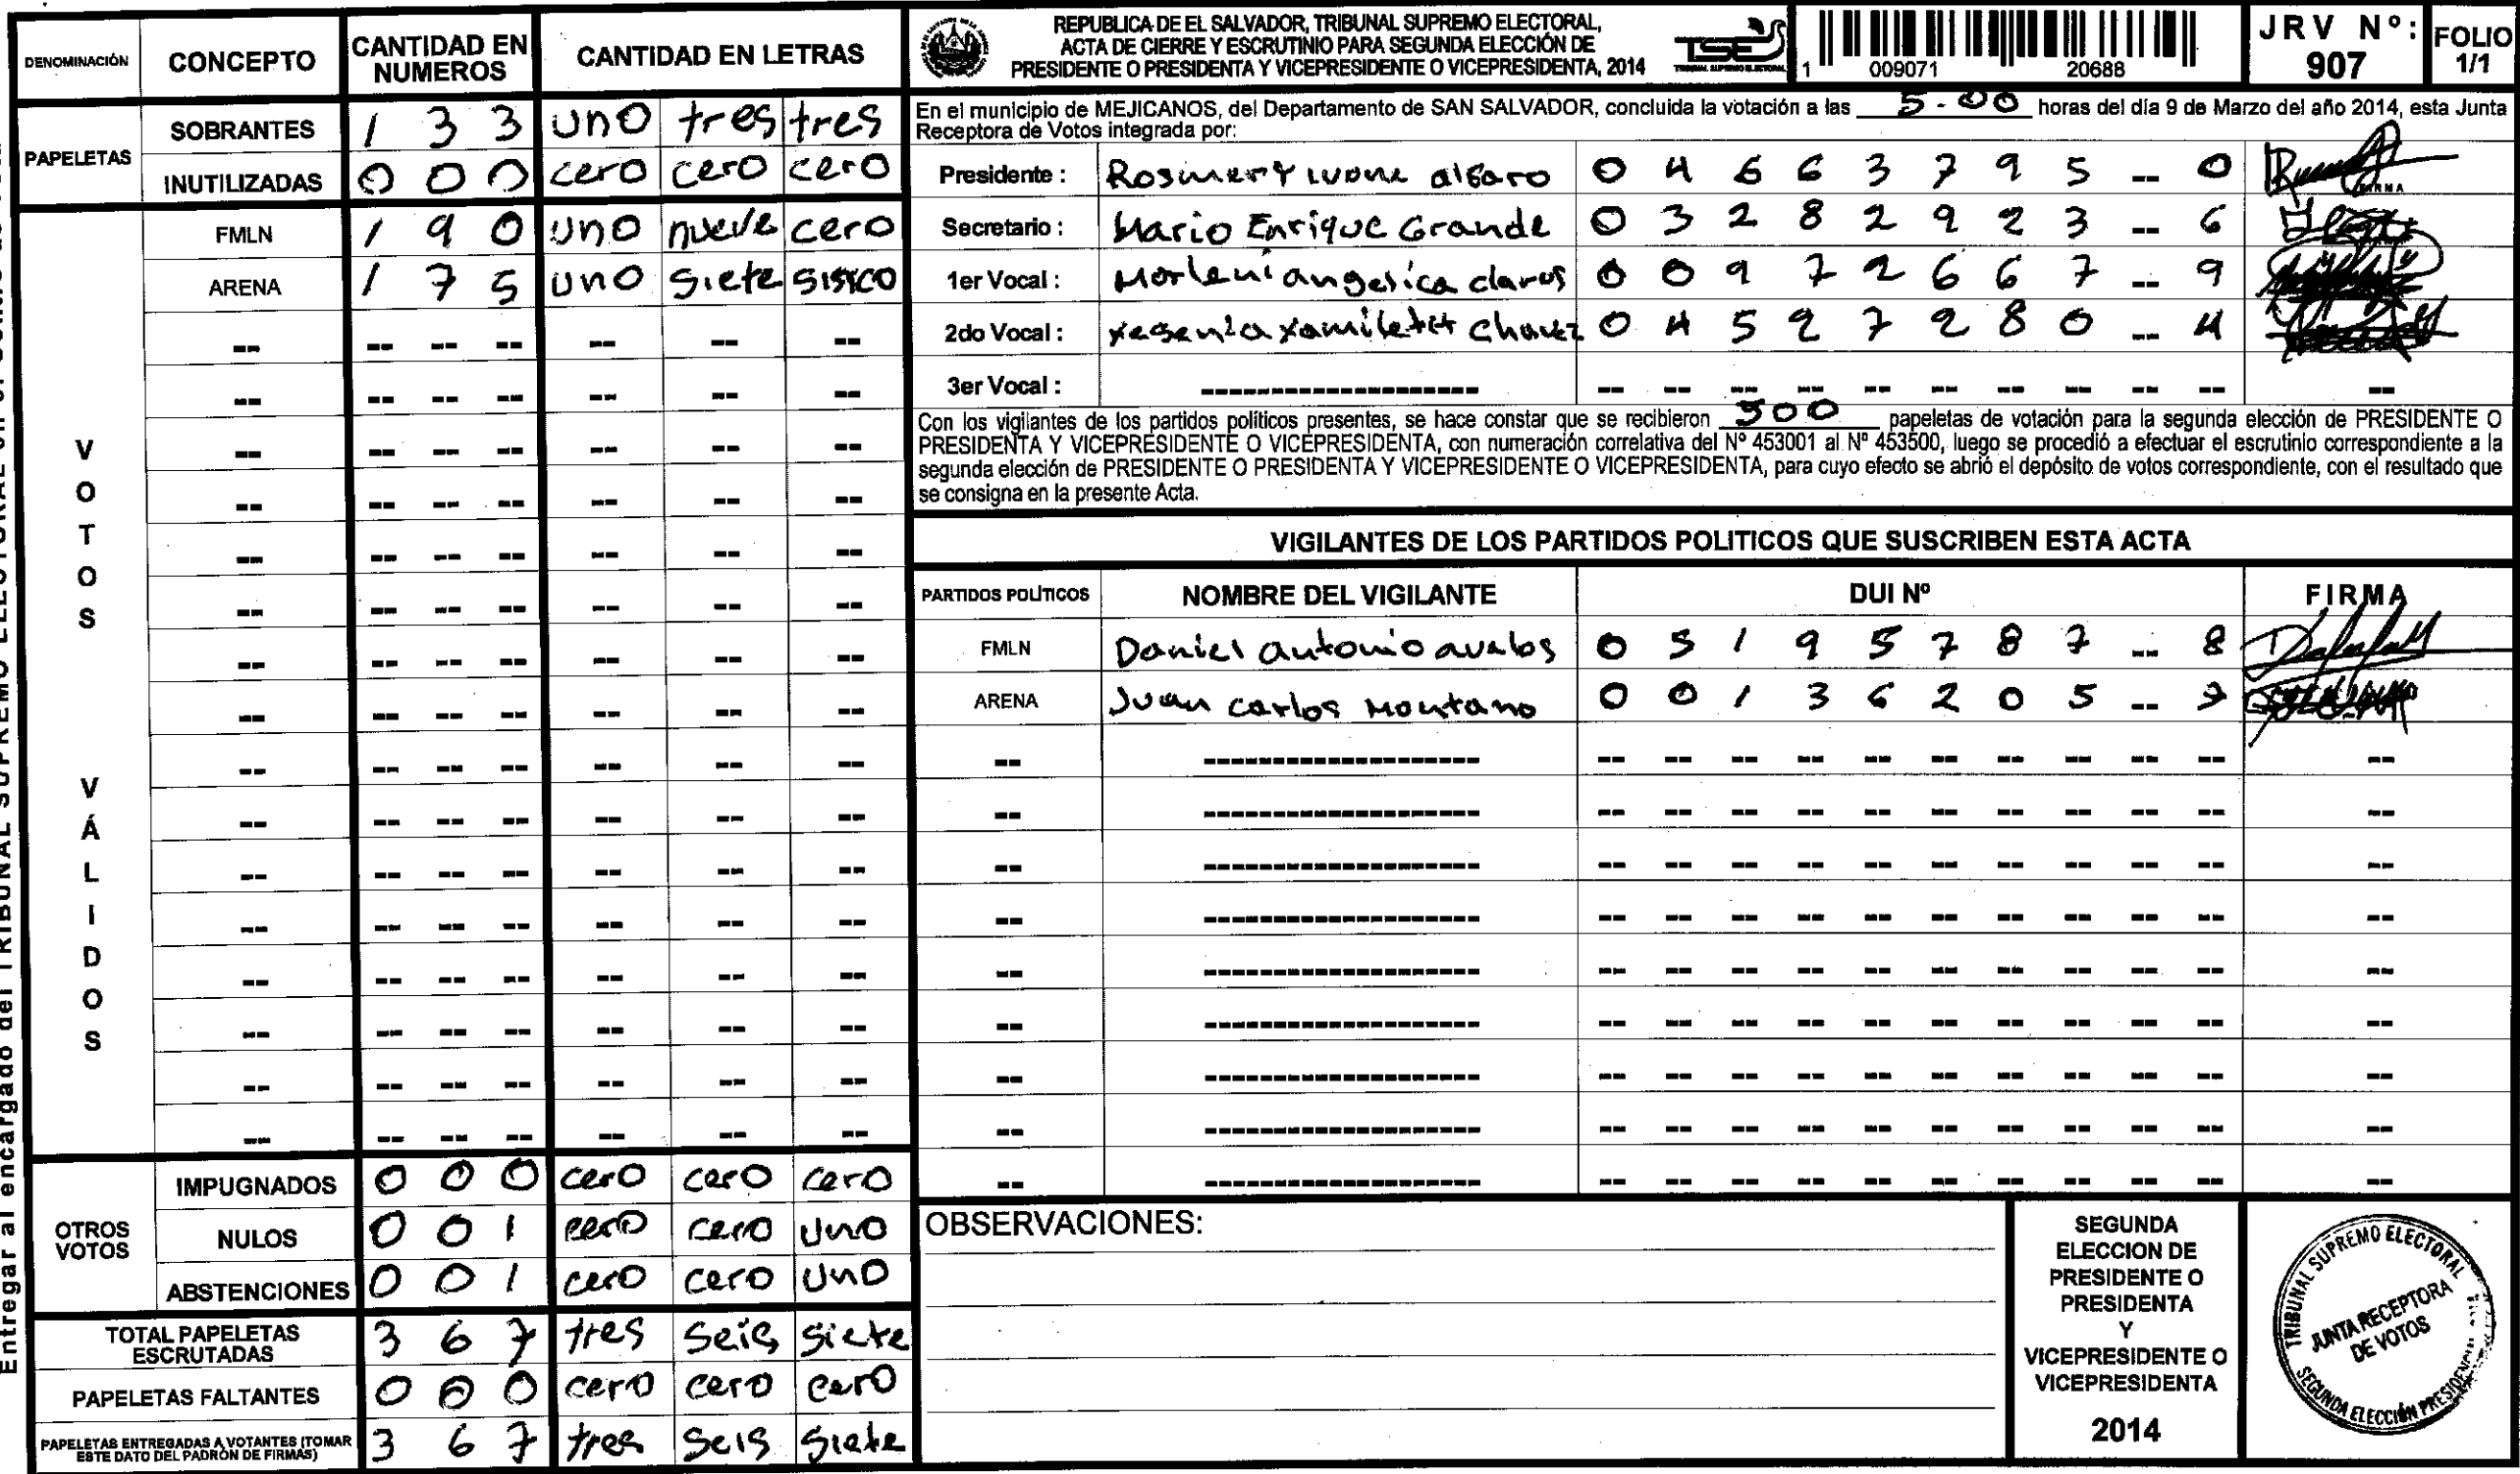 DENOMINACIÓN CONCEPTO CANTIDAD EN NUMEROS CANTIDAD EN LETRAS
PAPELETAS
SOBRANTES 1 3 3 uno tres tres
INUTILIZADAS 0 0 0 cero cero cero
VOTOS VÁLIDOS
FMLN 1 9 0 uno nueve cero
ARENA 1 7 5 uno siete
OTROS VOTOS
IMPUGNADOS 0 0 0 cero cero cero
NULOS 0 0 1 cero cero uno
ABSTENCIONES 0 0 1 cero cero uno
TOTAL PAPELETAS ESCRUTADAS 3 6 7 tres seis siete
PAPELETAS FALTANTES 0 0 0 cero cero cero
PAPELETAS ENTREGADAS A VOTANTES (TOMAR ESTE DATO DEL PADRÓN DE FIRMAS) 3 6 7 tres seis siete
REPUBLICA DE EL SALVADOR, TRIBUNAL SUPREMO ELECTORAL,
ACTA DE CIERRE Y ESCRUTINIO PARA SEGUNDA ELECCIÓN DE
PRESIDENTE O PRESIDENTA Y VICEPRESIDENTE O VICEPRESIDENTA, 2014
TSE
TRIBUNAL SUPREMO ELECTORAL
1 009071 20688
JRV Nº: 907
FOLIO 1/1
En el municipio de MEJICANOS, del Departamento de SAN SALVADOR, concluida la votación a las 5-00 horas del día 9 de Marzo del año 2014, esta Junta
Receptora de Votos integrada por:
Presidente : Rosmery Ivone alfaro 0 4 6 6 3 7 9 5 -- 0
FIRMA
Secretario : Mario Enrique Grande 0 3 2 8 2 9 2 3 -- 6
1er Vocal : Morleni angesica claros 0 0 9 7 2 6 6 7 -- 9
2do Vocal : yesenia xamileth Chavez 0 4 5 2 7 2 8 0 -- 4
3er Vocal :
Con los vigilantes de los partidos políticos presentes, se hace constar que se recibieron 500 papeletas de votación para la segunda elección de PRESIDENTE O
PRESIDENTA Y VICEPRESIDENTE O VICEPRESIDENTA, con numeración correlativa del Nº 453001 al Nº 453500, luego se procedió a efectuar el escrutinio correspondiente a la
segunda elección de PRESIDENTE O PRESIDENTA Y VICEPRESIDENTE O VICEPRESIDENTA, para cuyo efecto se abrió el depósito de votos correspondiente, con el resultado que
se consigna en la presente Acta.
VIGILANTES DE LOS PARTIDOS POLITICOS QUE SUSCRIBEN ESTA ACTA
PARTIDOS POLÍTICOS NOMBRE DEL VIGILANTE DUI Nº FIRMA
FMLN Daniel antonio avalos 0 5 1 9 5 7 8 7 -- 8
ARENA Juan carlos Montano 0 0 1 3 6 2 0 5 -- 7
OBSERVACIONES:
SEGUNDA
ELECCION DE
PRESIDENTE O
PRESIDENTA
Y
VICEPRESIDENTE O
VICEPRESIDENTA
2014
TRIBUNAL SUPREMO ELECTORAL
JUNTA RECEPTORA
DE VOTOS
SEGUNDA ELECCIÓN
Entregar al encargado del TRIBUNAL SUPREMO